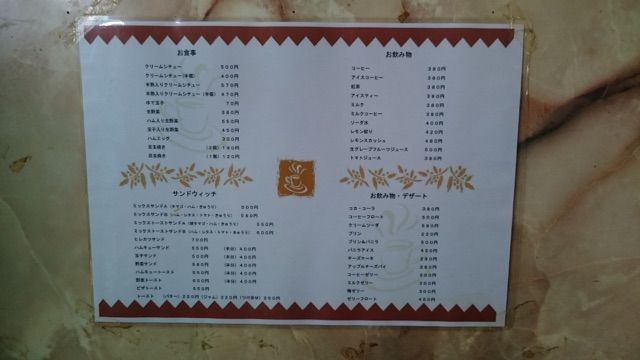 お食事
クリームシチュー 500円
クリームシチュー(半個) 400円
半熟入りクリームシチュー 570円
半熟入りクリームシチュー (半個) 470円
ゆで玉子 70円
生野菜 380円
ハム入り生野菜 550円
玉子入り生野菜 450円
ハムエッグ 300円
目玉焼き (2個) 190円
目玉焼き (1個) 120円
サンドウィッチ
ミックスサンドA (タマゴ・ハム・きゅうり) 500円
ミックスサンドB (ハム・レタス・トマト・きゅうり) 560円
ミックストーストサンドA
ミックストーストサンドB (ハム・レタス・トマト・きゅうり) 600円
ヒレカツサンド 700円
ハムキューサンド (半分) 400円
玉子サンド 500円 (半分) 400円
野菜サンド (半分) 400円
ハムキュートースト (半分) 400円
野菜トースト (半分) 400円
ピザトースト (半分) 400円
トースト (バター) (ジャム)
お飲み物
コーヒー 380円
アイスコーヒー 380円
紅茶 380円
アイスティー 380円
ミルク 380円
ミルクコーヒー 380円
ソーダ水 400円
レモン絞り 420円
レモンスカッシュ 480円
生グレープフルーツジュース 500円
トマトジュース 380円
お飲み物・デザート
コカ・コーラ 380円
コーヒーフロート 500円
クリームソーダ
プリン
プリン&バニラ 500円
バニラアイス
チーズケーキ
アップルチーズパイ
コーヒーゼリー
ミルクゼリー
梅ゼリー 300円
ゼリーフロート 450円